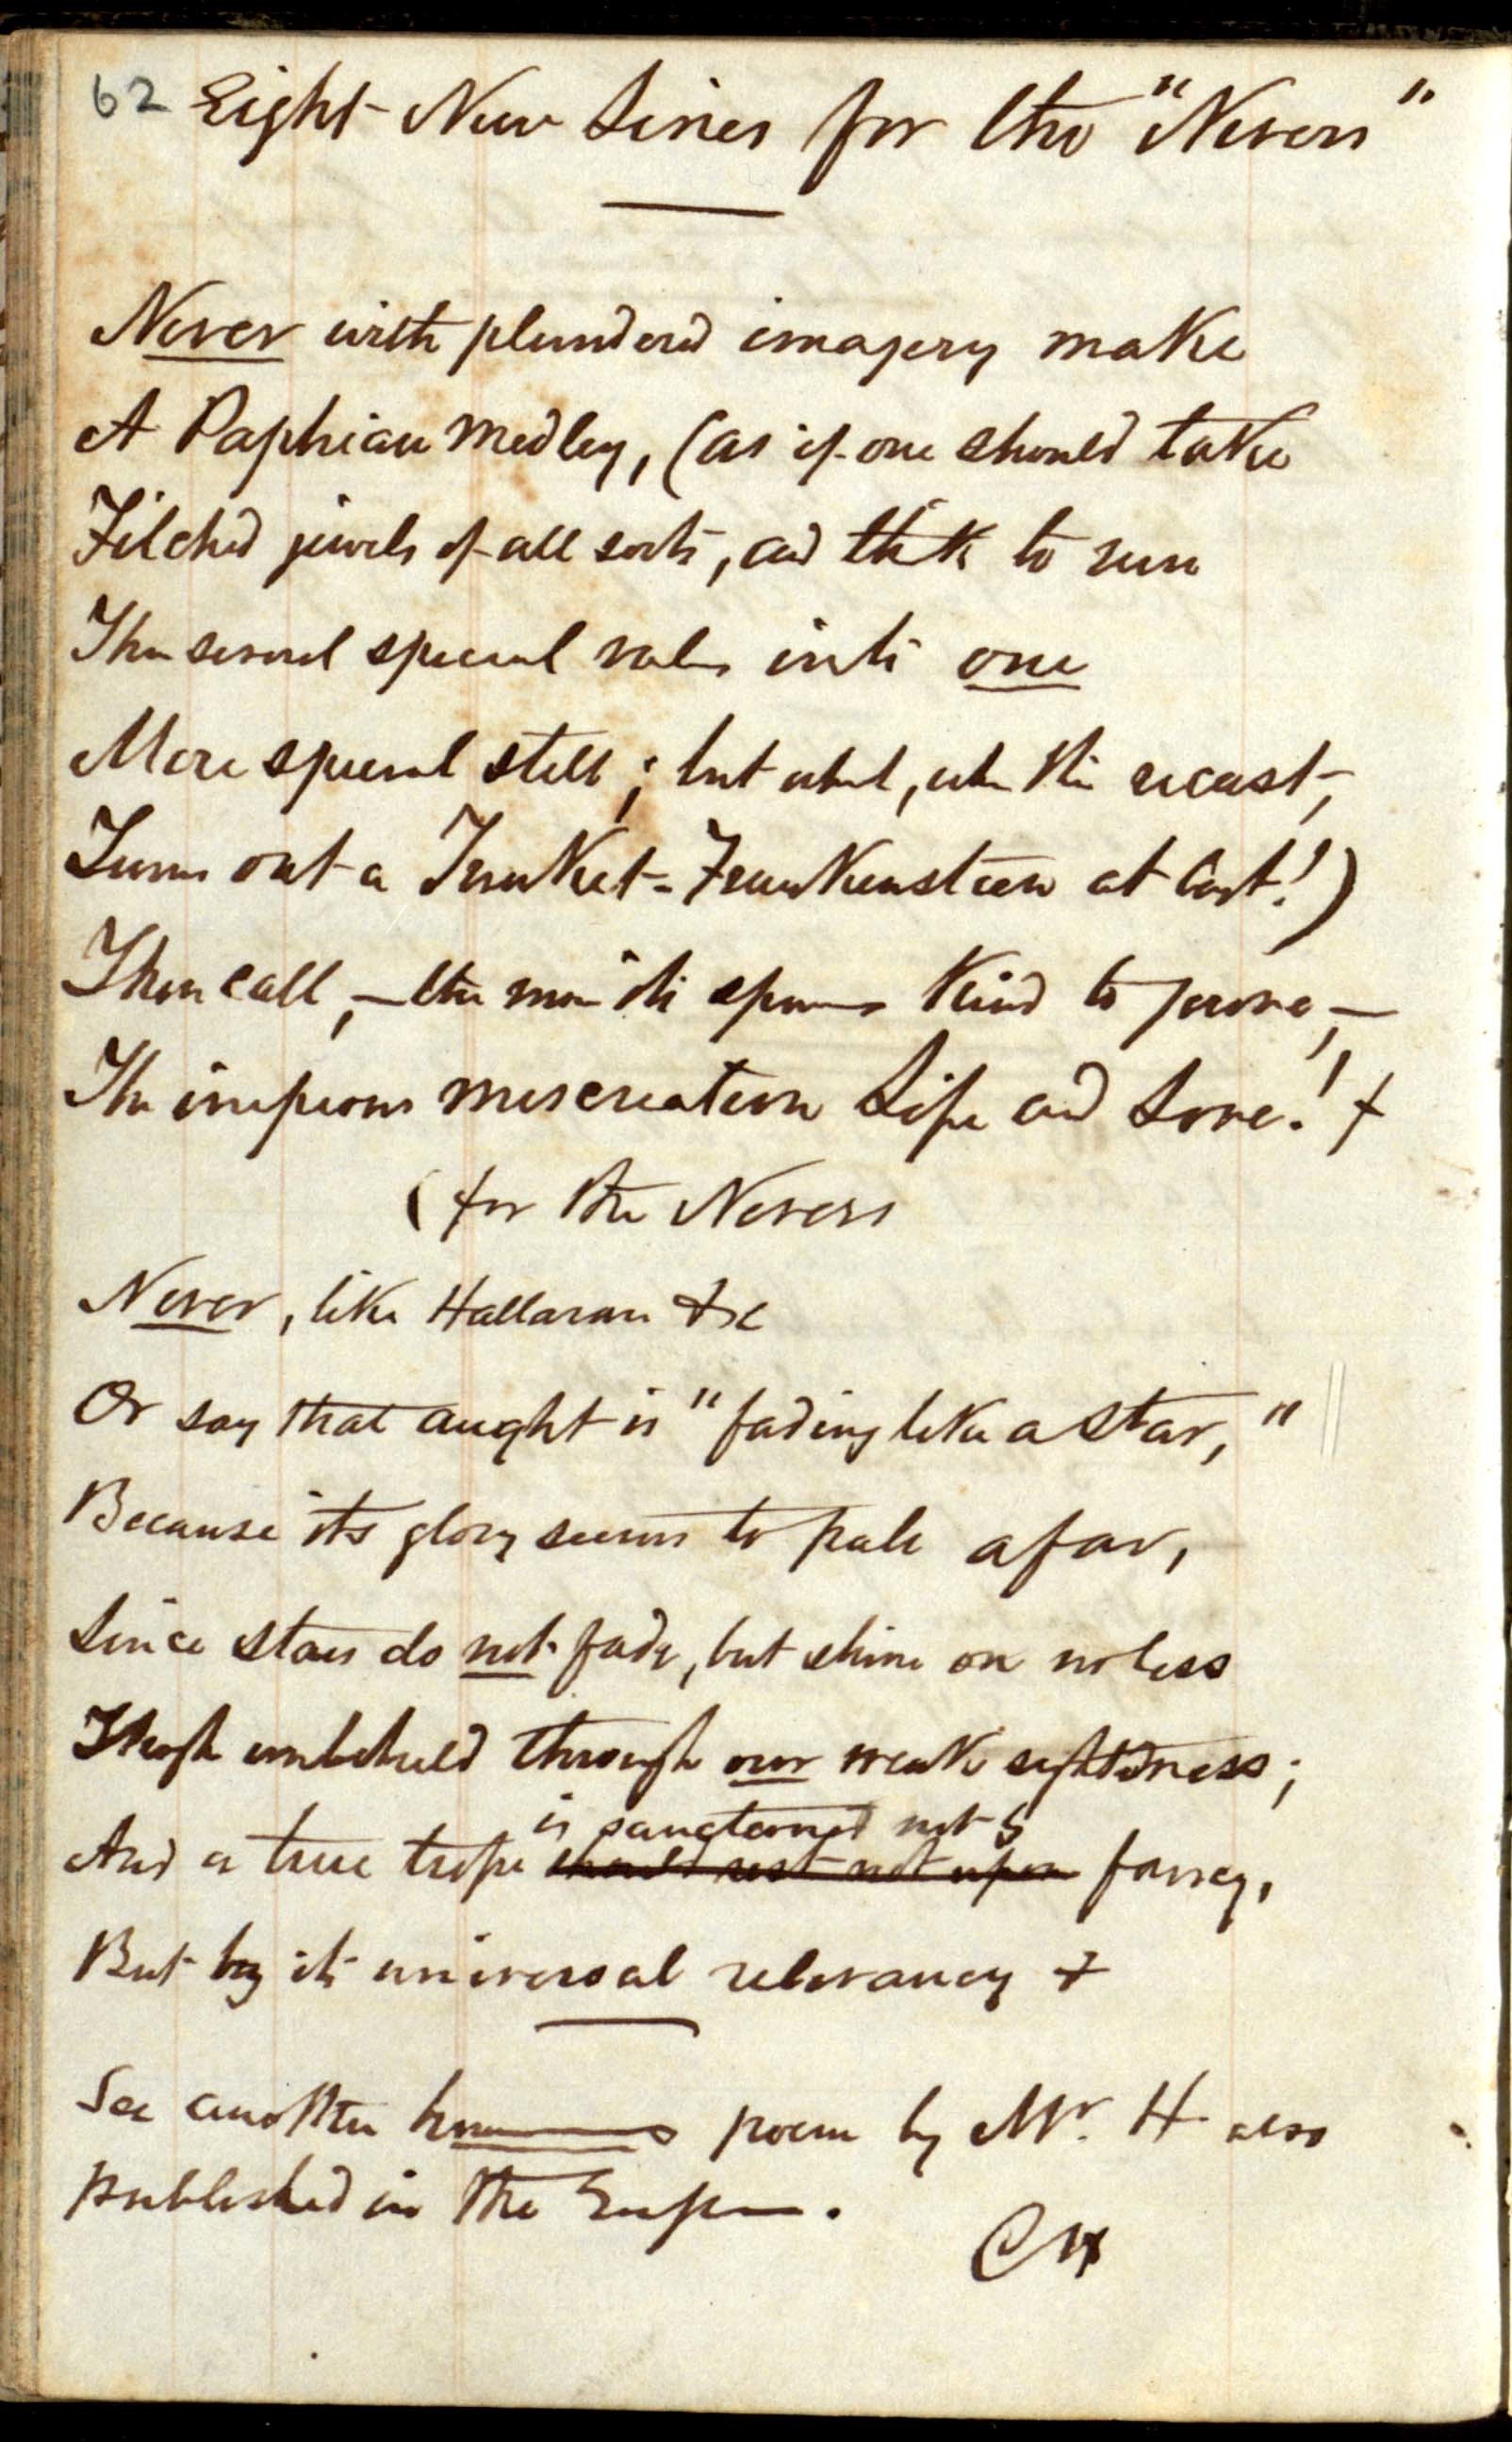 62 Eight New Lines for the "Nevers"
Never with plundered imagery make
A Paphian medley, (as if one should take
Filched jewels of all sorts, and think to run
Their several special values into one
More special still; but what, when the recast,
Turns out a Trinket-Frankenstein at last!)
Then call, — the more its spurious kind to prove, —
The impious miscreation Life and Love! +
(for the Nevers
Never, like Halloran &c
Or say that aught is "fading like a star,"
Because its glory seems to pale afar,
Since stars do not fade, but shine on no less
Though unbeheld through our weak sightedness;
is sanctioned not by
And a true trope should rest not upon fancy,
But by its universal relevancy +
See another poem by Mr. H also
published in the
CH